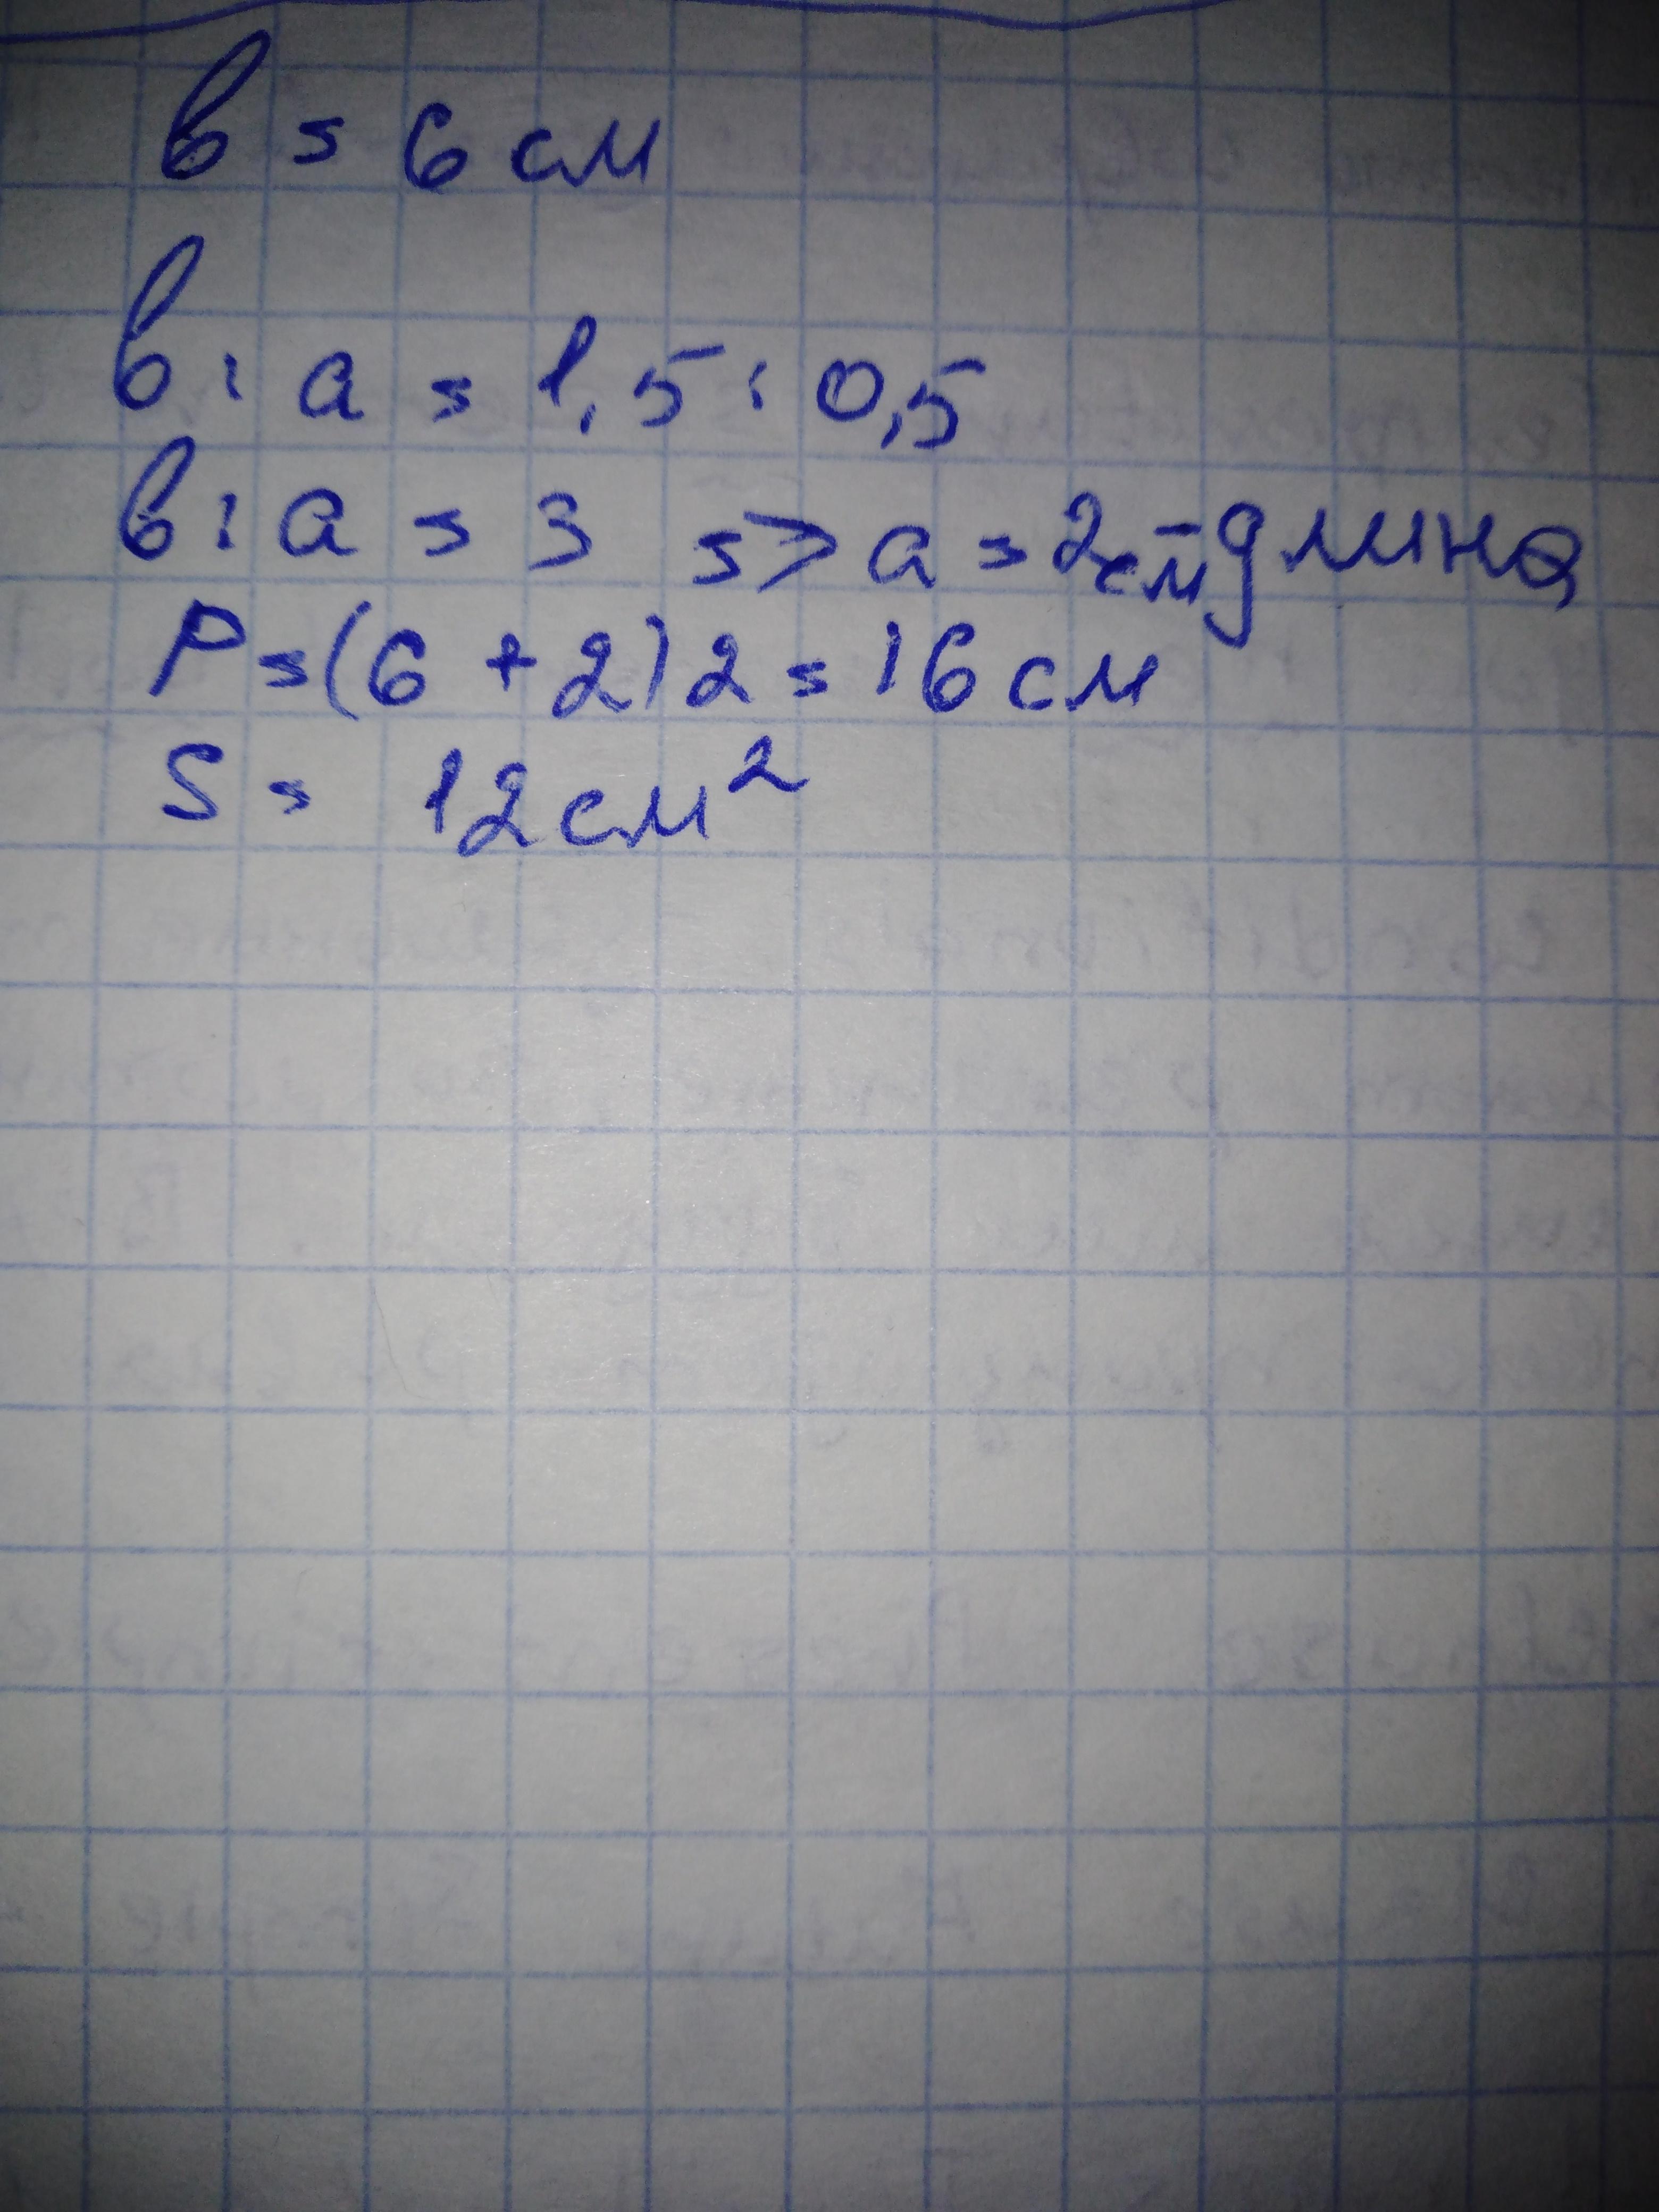 в = 6 см
в : а = 1,5 : 0,5
в : а = 3 => а = 2см - длина
P = (6 + 2) 2 = 16 см
S = 12 см²